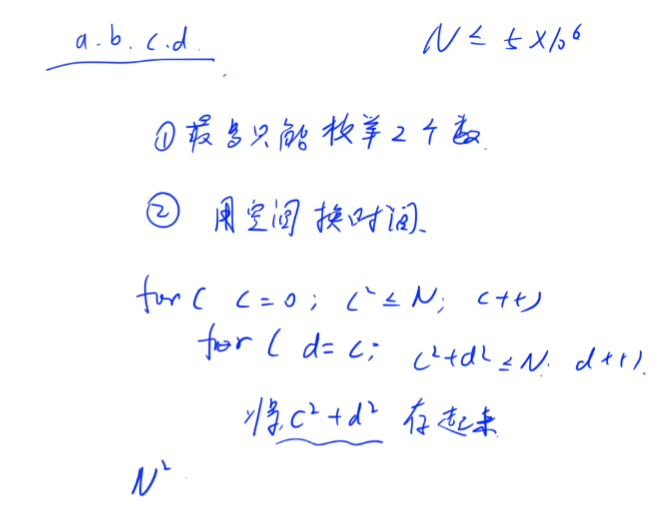 a.b.c.d. N ≤ 5×10⁶
① 最多只能枚举2个数.
② 用空间换时间.
for ( c=0; c²≤N; c++)
for ( d=c; c²+d²≤N. d++).
将c²+d² 存起来
N²